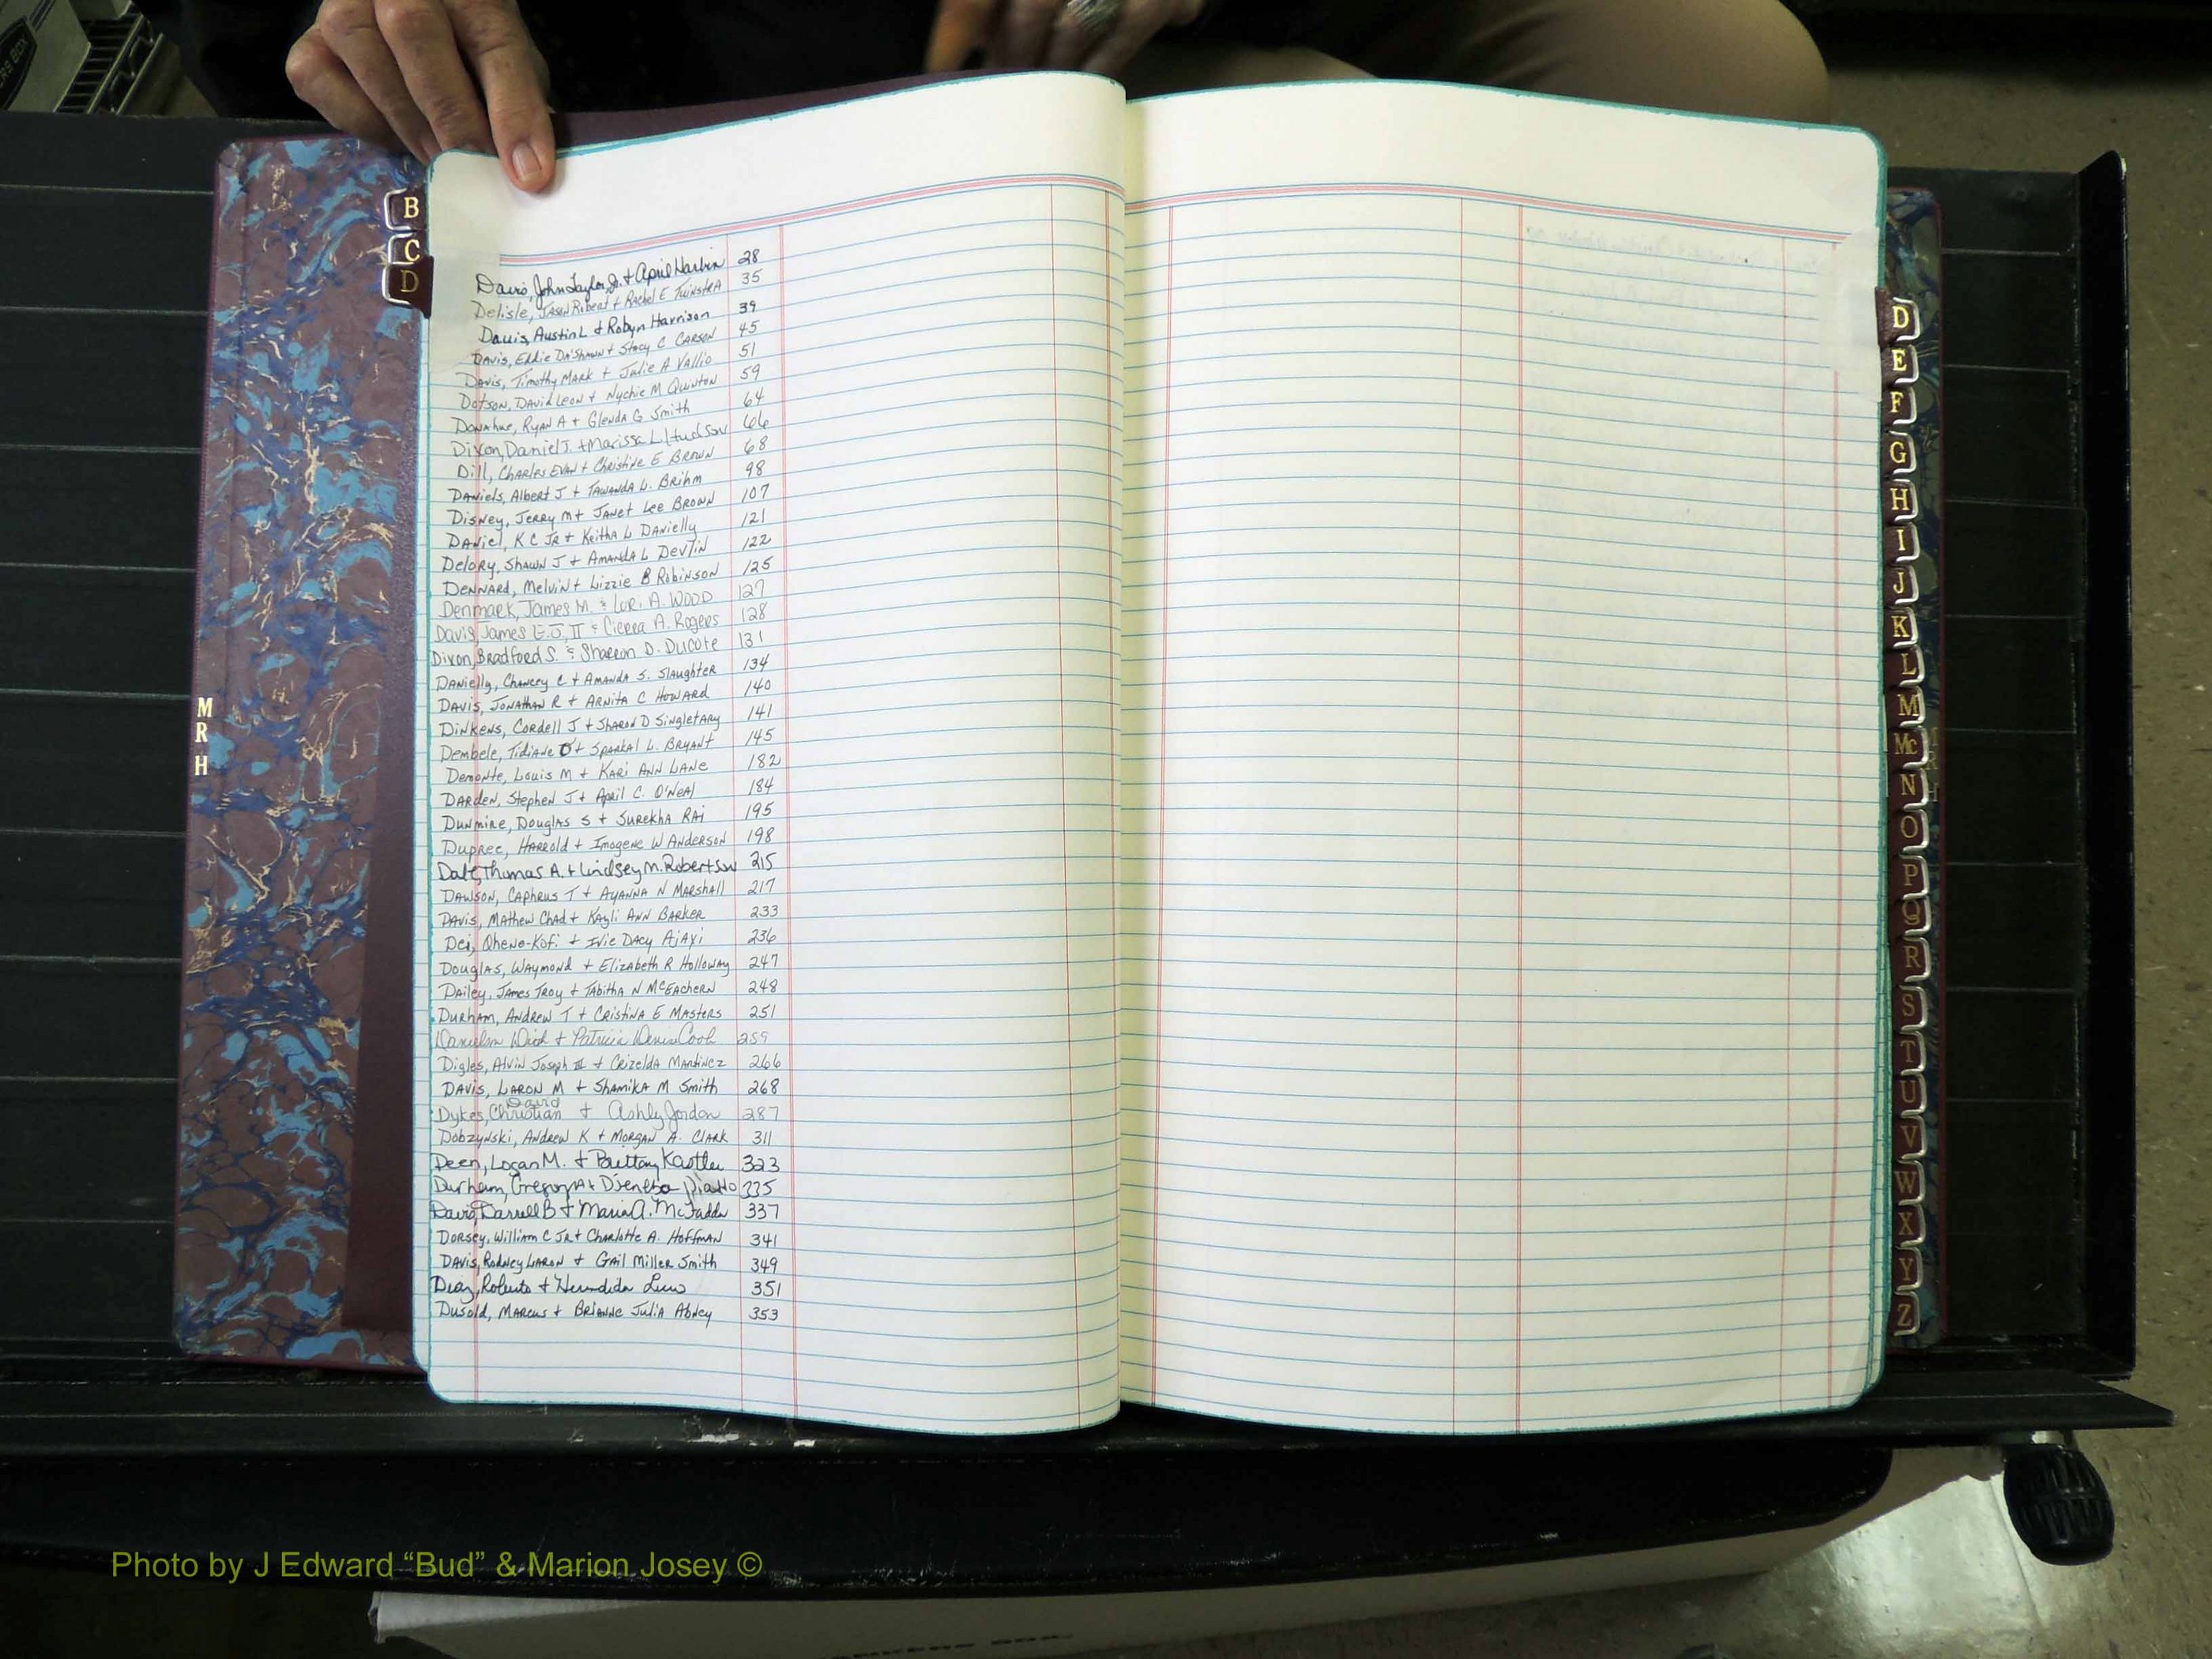 B
C
D
Davis, John Taylor, Jr. + April Harbin 28
Delisle, Jason Robert + Rachel E Twinstra 35
Davis, Austin L + Robyn Harrison 39
Davis, Eddie Da'Shawn + Stacy C Carson 45
Davis, Timothy Mark + Julie A Vallio 51
Dotson, David Leon + Nychie M Quinton 59
Donahue, Ryan A + Glenda G Smith 64
Dixon, Daniel J. + Marissa L Hudson 66
Dill, Charles Evan + Christine E Brown 68
Daniels, Albert J + Tawanda L. Brihm 98
Disney, Jerry M + Janet Lee Brown 107
Daniel, K C Jr + Keitha L Danielly 121
Delory, Shawn J + Amanda L Devlin 122
Dennard, Melvin + Lizzie B Robinson 125
Denmark, James M. & Lori A. Wood 127
Davis, James E.J, II & Cierra A. Rogers 128
Dixon, Bradford S. & Sharron D. Ducote 131
Danielly, Chancey C + Amanda S. Slaughter 134
Davis, Jonathan R + Arnita C Howard 140
Dinkens, Cordell J + Sharon D Singletary 141
Dembele, Tidiane O + Sparkal L. Bryant 145
Demonte, Louis M + Kari Ann Lane 182
Darden, Stephen J + April C. O'Neal 184
Dunmire, Douglas S + Surekha Rai 195
Dupree, Harrold + Imogene W Anderson 198
Dale, Thomas A. + Lindsey M. Robertson 215
Dawson, Caphrus T + Ayanna N Marshall 217
Davis, Mathew Chad + Kayli Ann Barker 233
Dei, Ohene-Kofi + Ivie Dacy Ajayi 236
Douglas, Waymond + Elizabeth R Holloway 247
Dailey, James Troy + Tabitha N McEachern 248
Durham, Andrew T + Cristina E Masters 251
+ Patricia Cook 259
Digles, Alvin Joseph II + Crizelda Martinez 266
Davis, Laron M + Shamika M Smith 268
Dykes, Christian David + Ashly Jordan 287
Dobzynski, Andrew K + Morgan A. Clark 311
Deen, Logan M. + Brittany 323
Durham, Gregory A + Djeneba Diallo 335
Davis, Darrell B + Maria A. McFadden 337
Dorsey, William C Jr + Charlotte A. Hoffman 341
Davis, Rodney Laron + Gail Miller Smith 349
Diaz, Roberto + 351
Dusold, Marcus + Brianne Julia Abney 353
M
R
H
D
E
F
G
H
I
J
K
L
M
Mc
N
O
P
Q
R
S
T
U
V
W
X
Y
Z
Photo by J Edward “Bud” & Marion Josey ©